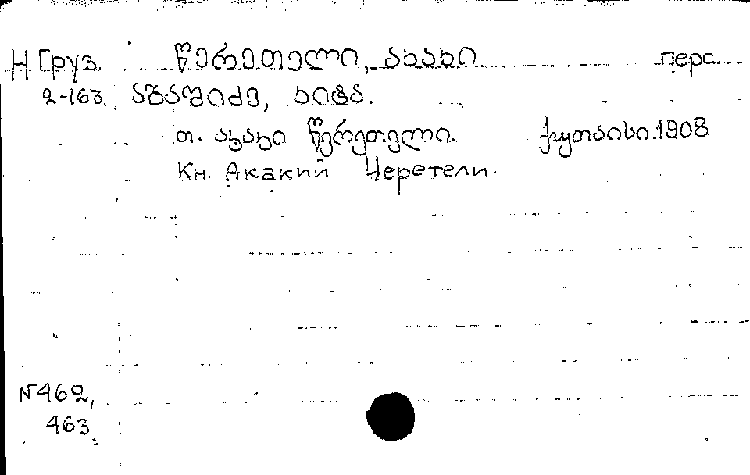 Н Груз. წერეთელი, აკაკი перс.
2-163 აბაშიძე, კიტა.
თ. აკაკი წერეთელი. ქუთაისი.1908
Кн. Акакий Церетели.
№462,
463.